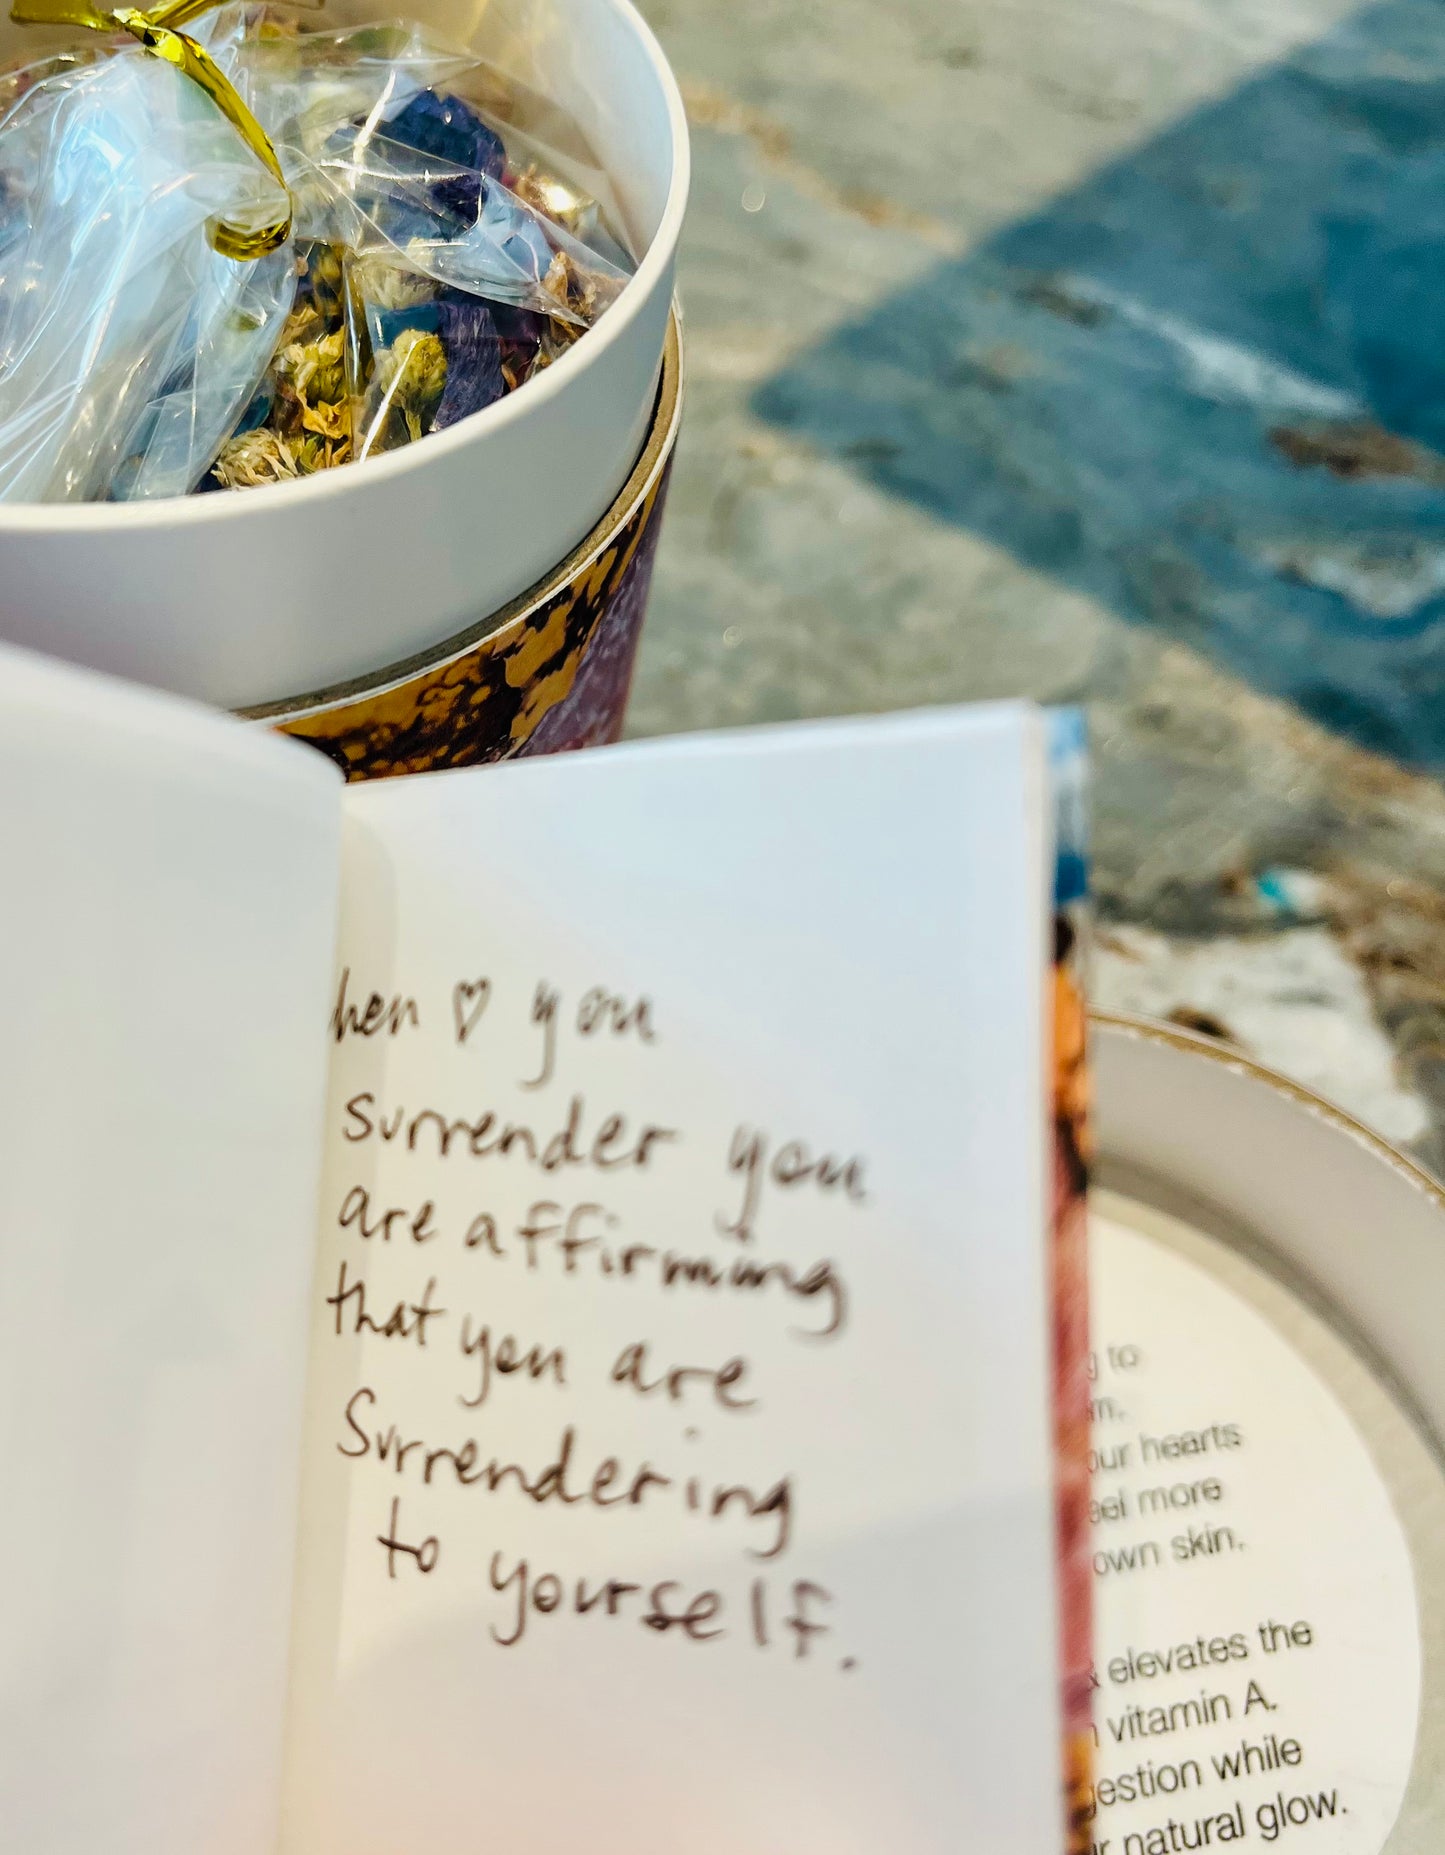 hen ♡ you
surrender you
are affirming
that you are
Surrendering
to yourself.
to
our hearts
more
own skin.
elevates the
vitamin A.
while
natural glow.